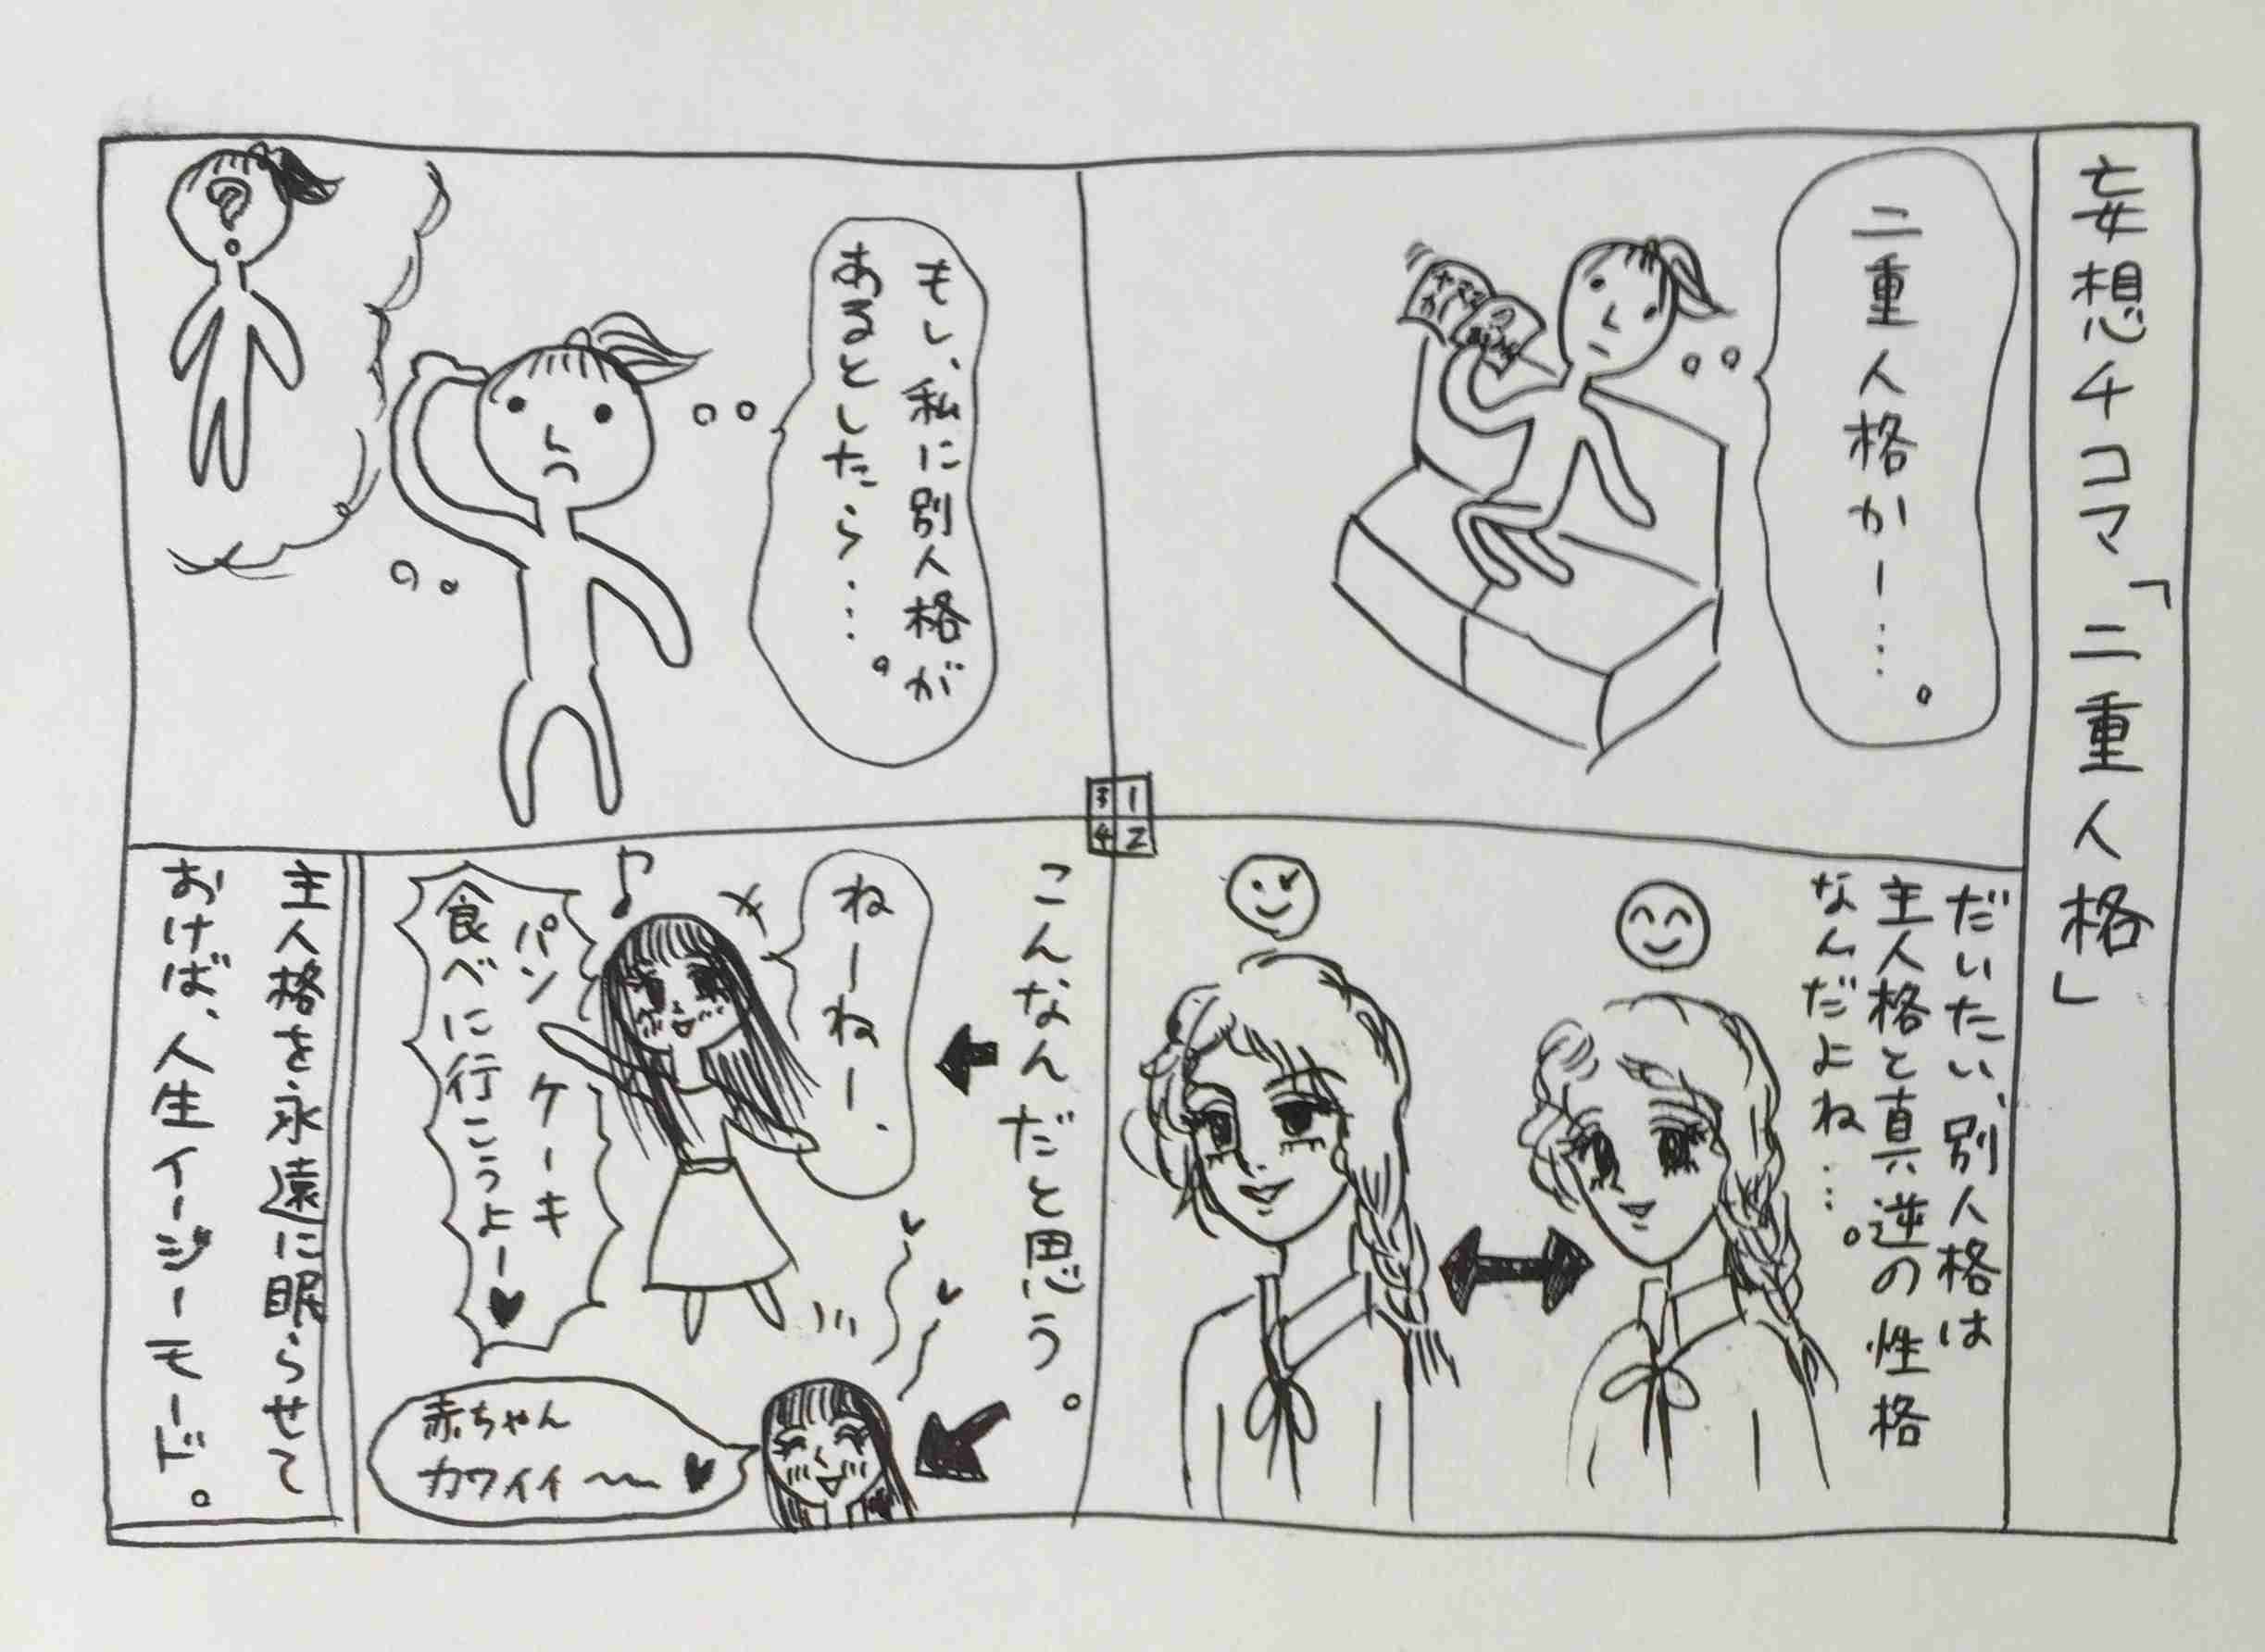 妄想4コマ「二重人格」
二重人格かー…。
だいたい、別人格は
主人格と真逆の性格
なんだよね…。
もし、私に別人格が
あるとしたら…。
こんなんだと思う。
ねーねー、
パンケーキ
食べに行こうよー♥
赤ちゃん
カワイイ〜♥
主人格を永遠に眠らせて
おけば、人生イージーモード。
3 1
4 2